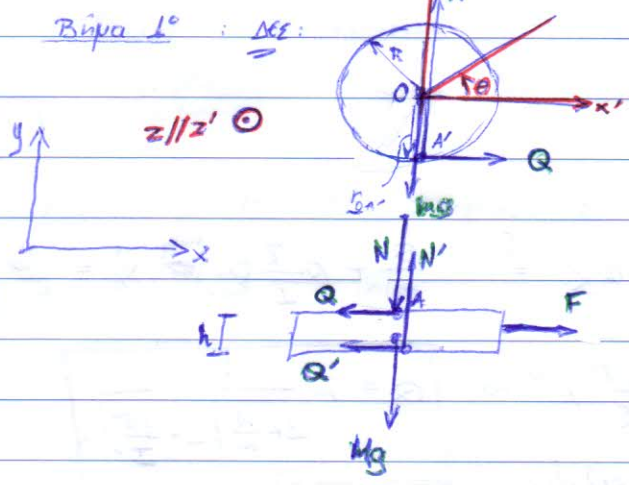 Βήμα 1º : ΔΕΣ:
R
O
θ
x'
z//z'
A'
Q
y
mg
x
N
N'
Q
A
F
h
Q'
Mg